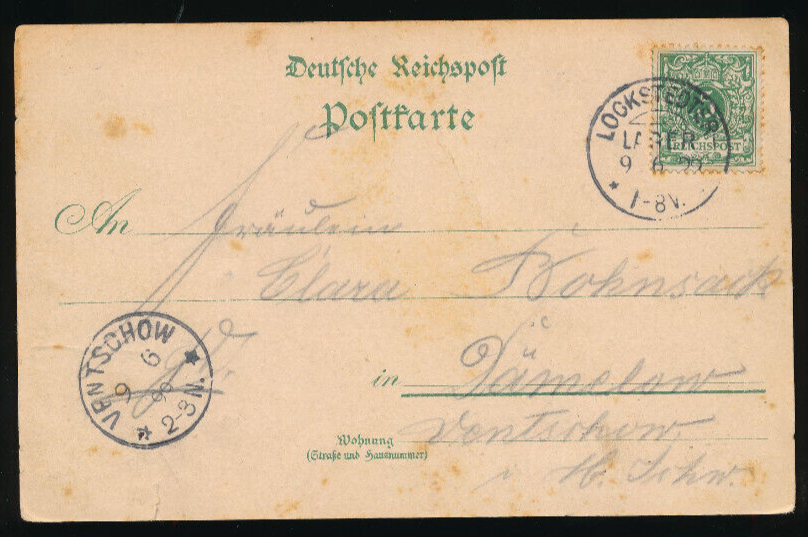 Deutsche Reichspost
Postkarte
REICHSPOST
LOCKSTEDTER
LAGER
9 6 99
1-8V.
An Fräulein
Clara Bohnsack
in Dämelow
Wohnung
(Straße und Hausnummer)
Ventschow
i M. Schw.
VENTSCHOW
9 6 99
2-3N.